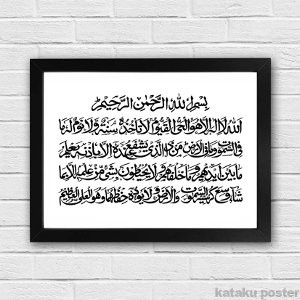 بسم الله الرحمن الرحيم
الله لا إله إلا هو الحي القيوم لا تأخذه سنة ولا نوم له ما
في السموات وما في الأرض من ذا الذي يشفع عنده إلا بإذنه يعلم
ما بين أيديهم وما خلفهم ولا يحيطون بشيء من علمه إلا بما
شاء وسع كرسيه السموات والأرض ولا يؤده حفظهما وهو العلي العظيم
kataku poster